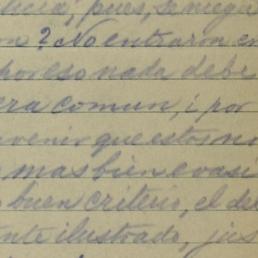 pues, se niegu
? No entraron en
por eso nada debe
era comun, i por
venir que estos no
mas bien evasi
buen criterio, el de
nte ilustrado, jus